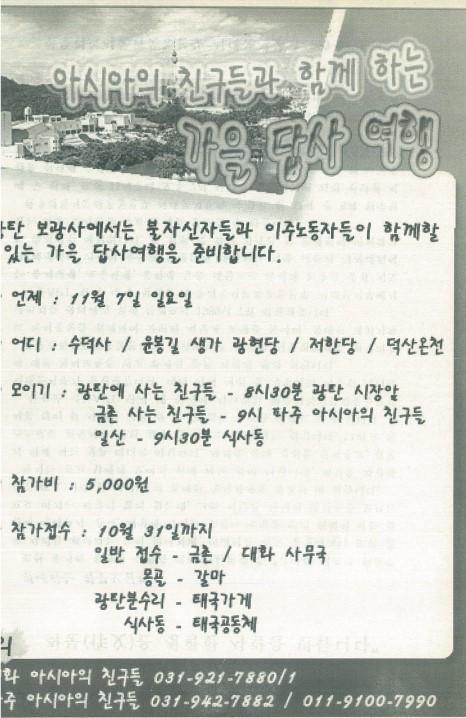 아시아의 친구들과 함께 하는
가을 답사 여행
광탄 보광사에서는 불자신자들과 이주노동자들이 함께할
있는 가을 답사여행을 준비합니다.
언제 : 11월 7일 일요일
어디 : 수덕사 / 윤봉길 생가 광현당 / 저한당 / 덕산온천
모이기 : 광탄에 사는 친구들 - 8시30분 광탄 시장앞
금촌 사는 친구들 - 9시 파주 아시아의 친구들
일산 - 9시30분 식사동
참가비 : 5,000원
참가접수 : 10월 31일까지
일반 접수 - 금촌 / 대화 사무국
몽골 - 갈마
광탄분수리 - 태국가게
식사동 - 태국공동체
의
화 아시아의 친구들 031-921-7880/1
주 아시아의 친구들 031-942-7882 / 011-9100-7990